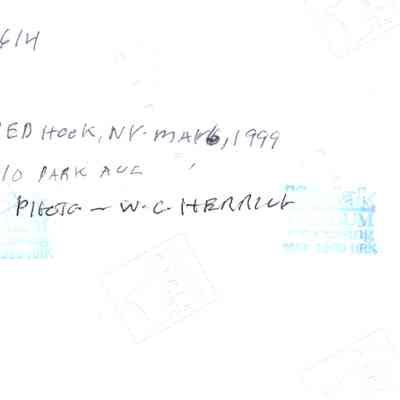 614
RED HOOK, NY. MAY 6, 1999
10 PARK AVE
PHOTO - W.C. HERRICK